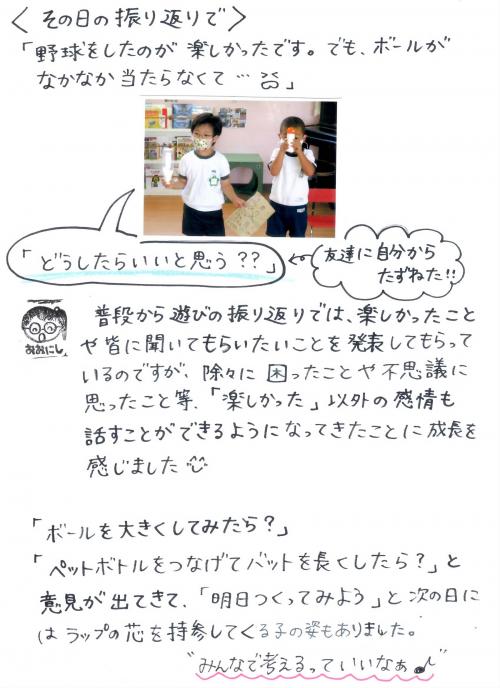 〈その日の振り返りで〉
「野球をしたのが楽しかったです。でも、ボールが
なかなか当たらなくて…」
「どうしたらいいと思う??」
友達に自分から
たずねた!!
おおにし
普段から遊びの振り返りでは、楽しかったこと
や皆に聞いてもらいたいことを発表してもらって
いるのですが、除々に困ったことや不思議に
思ったこと等、「楽しかった」以外の感情も
話すことができるようになってきたことに成長を
感じました
「ボールを大きくしてみたら?」
「ペットボトルをつなげてバットを長くしたら?」と
意見が出てきて、「明日つくってみよう」と次の日に
はラップの芯を持参してくる子の姿もありました。
"みんなで考えるっていいなぁ♪"